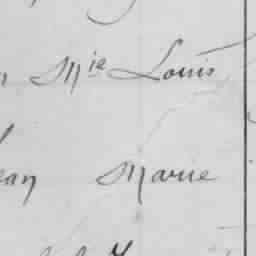 Mie Louis
ean Marie